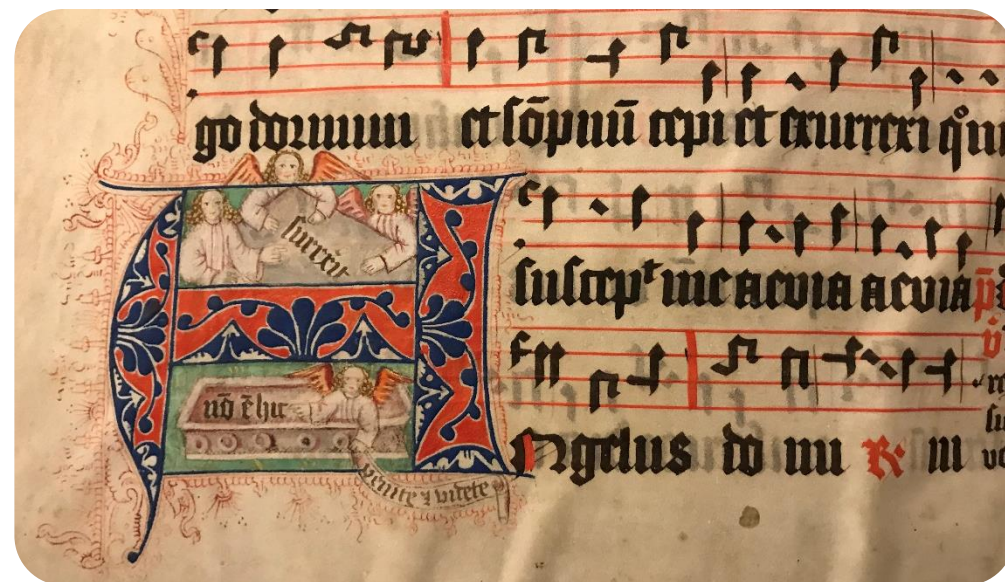 go dormiui et sōpnū cepi et exurrexi qm̊
surrexit
suscepᵗ me aevia aevia p̄
v̄
nō ē hic
Angelus do mi ℟ ni
venite ⁊ videte